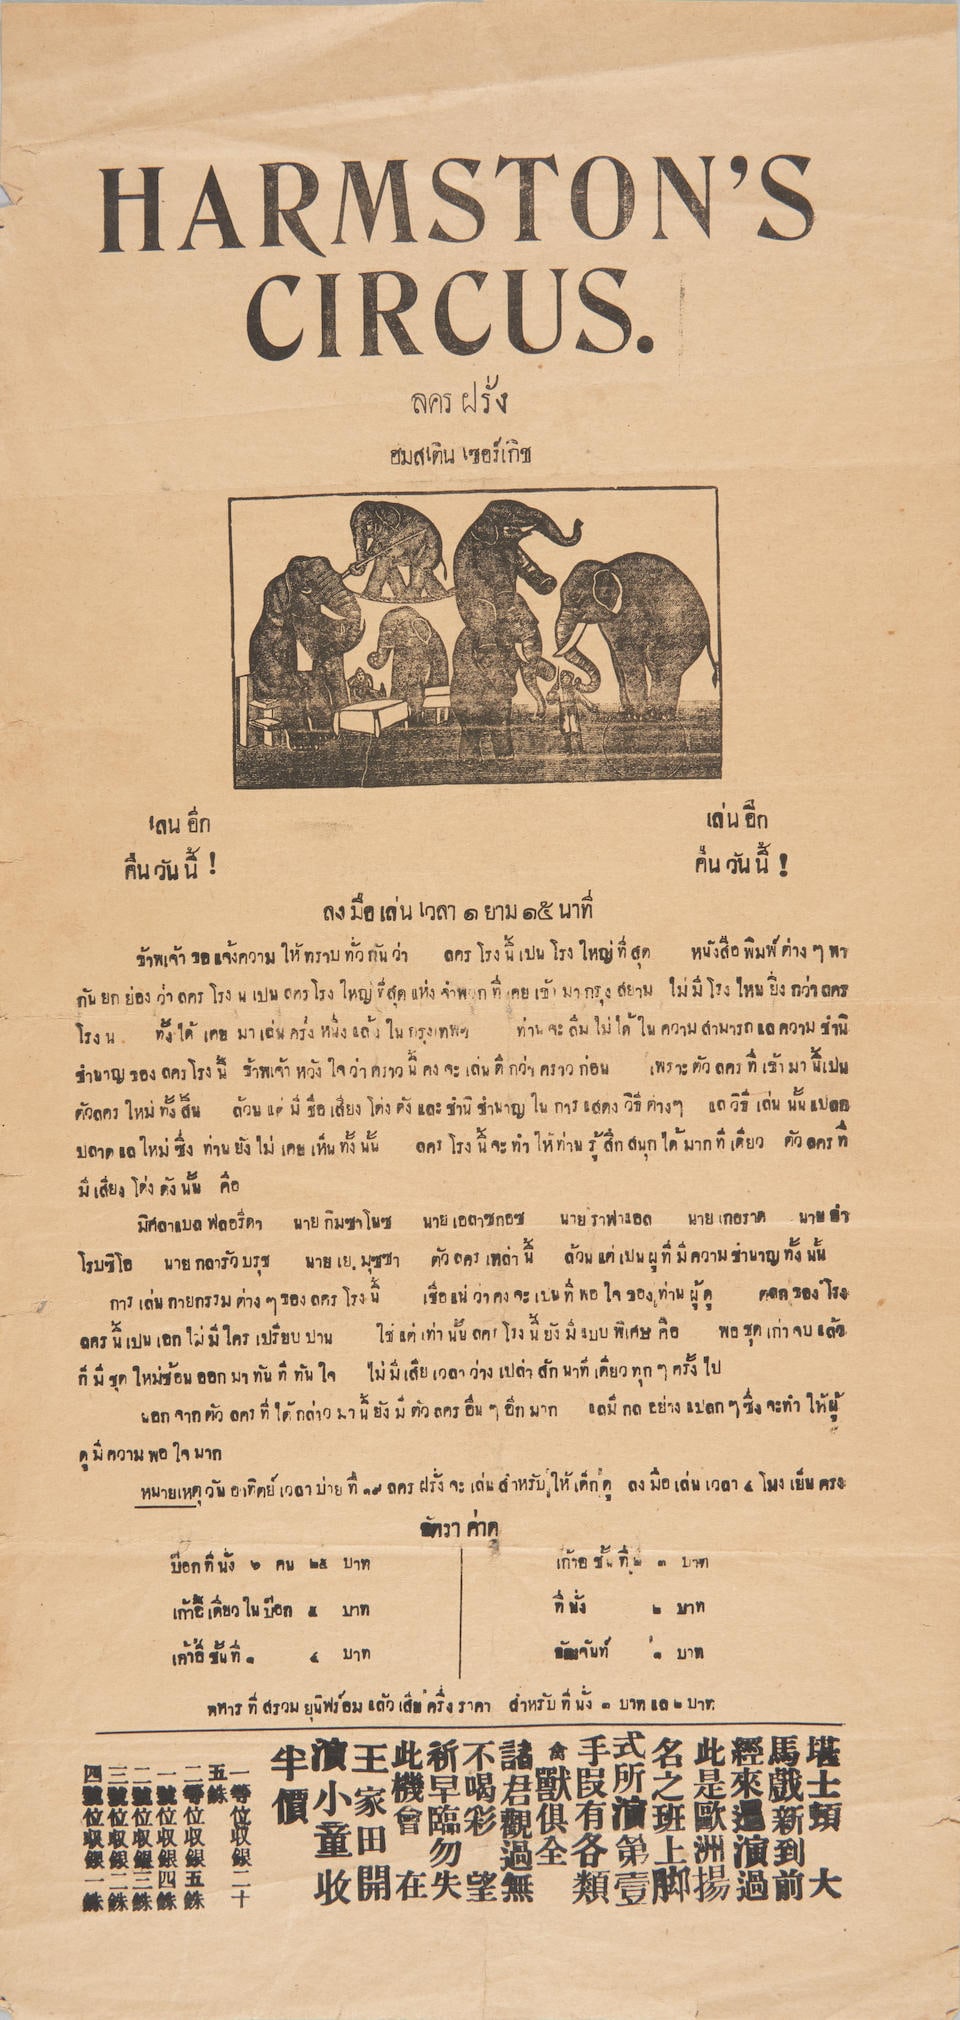 HARMSTON'S
CIRCUS.
ลคร ฝรั่ง
ฮมสเติน เซอร์เกิซ
เลน อีก
คืน วัน นี้ !
เล่น อีก
คืน วัน นี้ !
ลง มือ เล่น เวลา ๑ ยาม ๑๕ นาที
ข้าพเจ้า ขอ แจ้งความ ให้ ทราบ ทั่ว กัน ว่า ลคร โรง นี้ เปน โรง ใหญ่ ที่ สุด หนังสือ พิมพ์ ต่าง ๆ พา
กัน ยก ย่อง ว่า ลคร โรง น เปน ลคร โรง ใหญ่ ที่สุด แห่ง จำพวก ที่ เคย เข้า มา กรุง สยาม ไม่ มี โรง ไหน ยิ่ง กว่า ลคร
โรง น ทั้ง ได้ เคย มา เล่น ครั้ง หนึ่ง แล้ว ใน กรุงเทพฯ ท่าน จะ ลืม ไม่ ได้ ใน ความ สามารถ แล ความ ชำนิ
ชำนาญ ของ ลคร โรง นี้ ข้าพเจ้า หวัง ใจ ว่า คราว นี้ คง จะ เล่น ดี กว่า คราว ก่อน เพราะ ตัว ลคร ที่ เข้า มา นี้ เปน
ตัวลคร ใหม่ ทั้ง สิ้น ล้วน แต่ มี ชื่อ เสียง โด่ง ดัง และ ชำนิ ชำนาญ ใน การ แสดง วิธี ต่างๆ แล วิธี เล่น นั้น แปลก
ปลาด แล ใหม่ ซึ่ง ท่าน ยัง ไม่ เคย เห็น ทั้ง นั้น ลคร โรง นี้ จะ ทำ ให้ ท่าน รู้ สึก สนุก ได้ มาก ที เดียว ตัว ลคร ที่
มี เสียง โด่ง ดัง นั้น คือ
มิศลาเบล ฟลอริดา นาย กิมซาโนซ นาย เอลาซกอซ นาย ราฟาแอล นาย เกอราด นาย
โรบซิโอ นาย กลารัว บรุซ นาย เย. มุซซา ตัว ลคร เหล่า นี้ ล้วน แต่ เปน ผู้ ที่ มี ความ ชำนาญ ทั้ง นั้น
การ เล่น กายกรรม ต่าง ๆ ของ ลคร โรง นี้ เชื่อ แน่ ว่า คง จะ เปน ที่ พอ ใจ ของ ท่าน ผู้ ดู ตลก ของ โรง
ลคร นี้ เปน เอก ไม่ มี ใคร เปรียบ ปาน ใช่ แต่ เท่า นั้น ลคร โรง นี้ ยัง มี แบบ พิเศษ คือ พอ ชุด เก่า จบ แล้ว
ก็ มี ชุด ใหม่ ซ้อน ออก มา ทัน ที ทัน ใจ ไม่ มี เสีย เวลา ว่าง เปล่า สัก นาที เดียว ทุก ๆ ครั้ง ไป
นอก จาก ตัว ลคร ที่ ได้ กล่าว มา นี้ ยัง มี ตัว ลคร อื่น ๆ อีก มาก แลมี กล อย่าง แปลก ๆ ซึ่ง จะทำ ให้ ผู้
ดู มี ความ พอ ใจ มาก
หมายเหตุ วัน อาทิตย์ เวลา บ่าย ที่ ๑๙ ลคร ฝรั่ง จะ เล่น สำหรับ ให้ เด็ก ดู ลง มือ เล่น เวลา ๔ โมง เย็น ครง
อัตรา ค่าดู
บ๊อก ที่ นั่ง ๖ คน ๒๕ บาท
เก้าอี้ เดี่ยว ใน บ๊อก ๕ บาท
เก้าอี้ ชั้น ที่ ๑ ๔ บาท
เก้าอ ชั้น ที่ ๒ ๓ บาท
ที่ นั่ง ๒ บาท
อัฒจันท์ ๑ บาท
ทหาร ที่ สรวม ยูนิฟร์อม แล้ว เสีย ครึ่ง ราคา สำหรับ ที่ นั่ง ๓ บาท แล ๒ บาท
堪士頓 大
馬戲新到前
經來過演過
此是歐洲揚
名之班上脚
式所演第壹
手叚有各類
禽獸俱全
諸君觀過無
不喝彩 望
祈早臨勿失
此機會 在
王家田開
演小童收
半價
一等位収銀二十
五銖
二等位収銀五銖
一號位収銀四銖
二號位収銀三銖
三號位収銀二銖
四號位収銀一銖